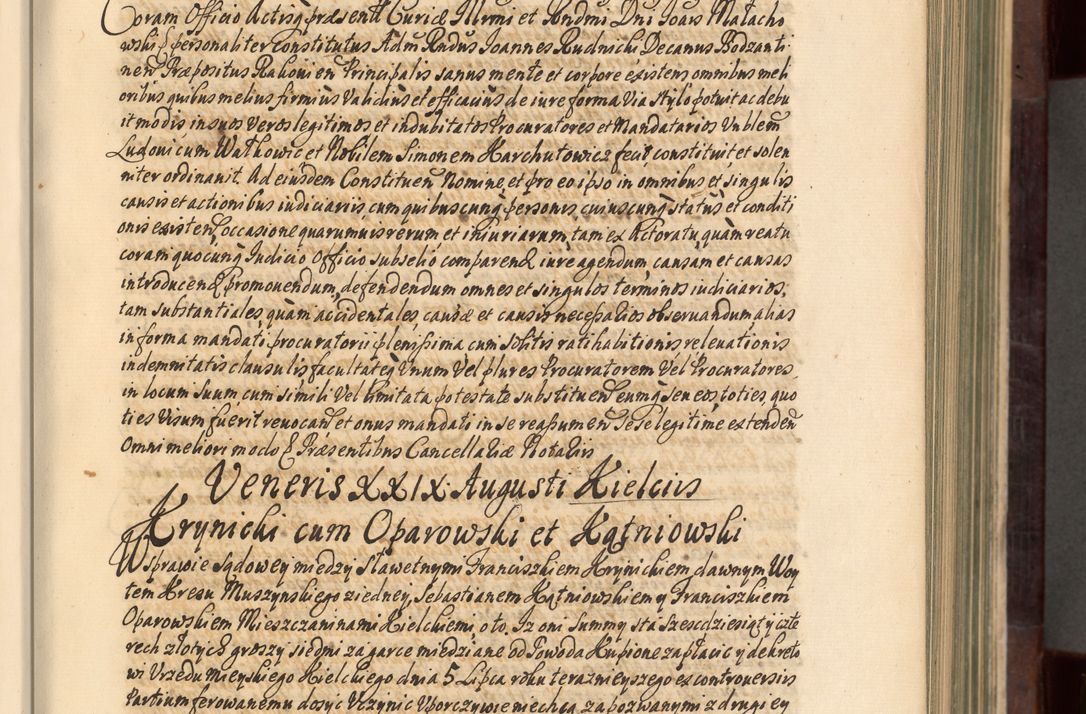 Coram Officio Actisq̃ præsentt Curiæ Illrmi et Rndmi Dni Joañs Małacho
wski Eꝑ personaliter constitutus Admͬ Rndus Joannes Rudnicki Decanus Bodzanti
nen̄ Præpositus Rakovien̄ Principalis sanus mente et corpore existens omnibus meli
oribus quibus melius firmius validius et efficacius de iure forma via stylo potuit ac debu
it modis in suos veros legitimos et indubitatos Procuratores et Mandatarios Vnblem̄
Ludovicum Wałkowic et Nobilem Simonem Harchutowicz fecit constituit et solen
niter ordinavit. Ad eiusdem Constituen̄ Nomine, et pro eo ipso in omnibus et singulis
causis et actionibus iudiciariis cum quibuscunq̃ personis cuiuscunq̃ status et conditi
onis existen̄ occasione quarumuis rerum et iniuriarum, tam ex Actoratu, quam reatu
coram quocunq̃ Iudicio Officio subselio comparend̄ iure agendum, causam et causas
introducend̄ promouendum, defendendum omnes et singulos terminos iudiciarios,
tam substantiales, quam accidentales, causæ et causis necessarios observandum, alias
in forma mandati procuratorii plenissima cum solitis ratihabitionis releuationis
indemnitatis clausulis facultateq̃ Vnum Vel plures Procuratorem Vel Procuratores
in locum suum cum simili Vel limitata potestate substituen̄ eumq̃ seu eos toties, quo
ties Visum fuerit reuocan̄ et onus mandati in se reassumen̄ Sese legitime extenden̄
Omni meliori modo E Præsentibus Cancellariæ Notariis
Veneris XXIX Augusti Kielciis
Krynicki cum Oparowski et Kątniowski
W sprawie sądowey między sławetnymi Franciszkiem Krynickiem dawnym Woy
tem Kresu Muszynskiego z iedney, Sebastianem Kątniowskiem y Franciszkiem
Oparowskiem Mieszczaninami Kielckiemi, o to. Iz oni summy sta szescdziesiąt y czte
rech złotych groszy siedmi za garce miedziane od Powoda Kupione zapłacic y dekreto
wi Vrzedu Mieyskiego Kielckiego dnia 5 Lipca roku teraznieyszego ex controversiis
Partium ferowanemu dosyc Vczynic Vporczywie niechcą zapozwanymi z drugiey